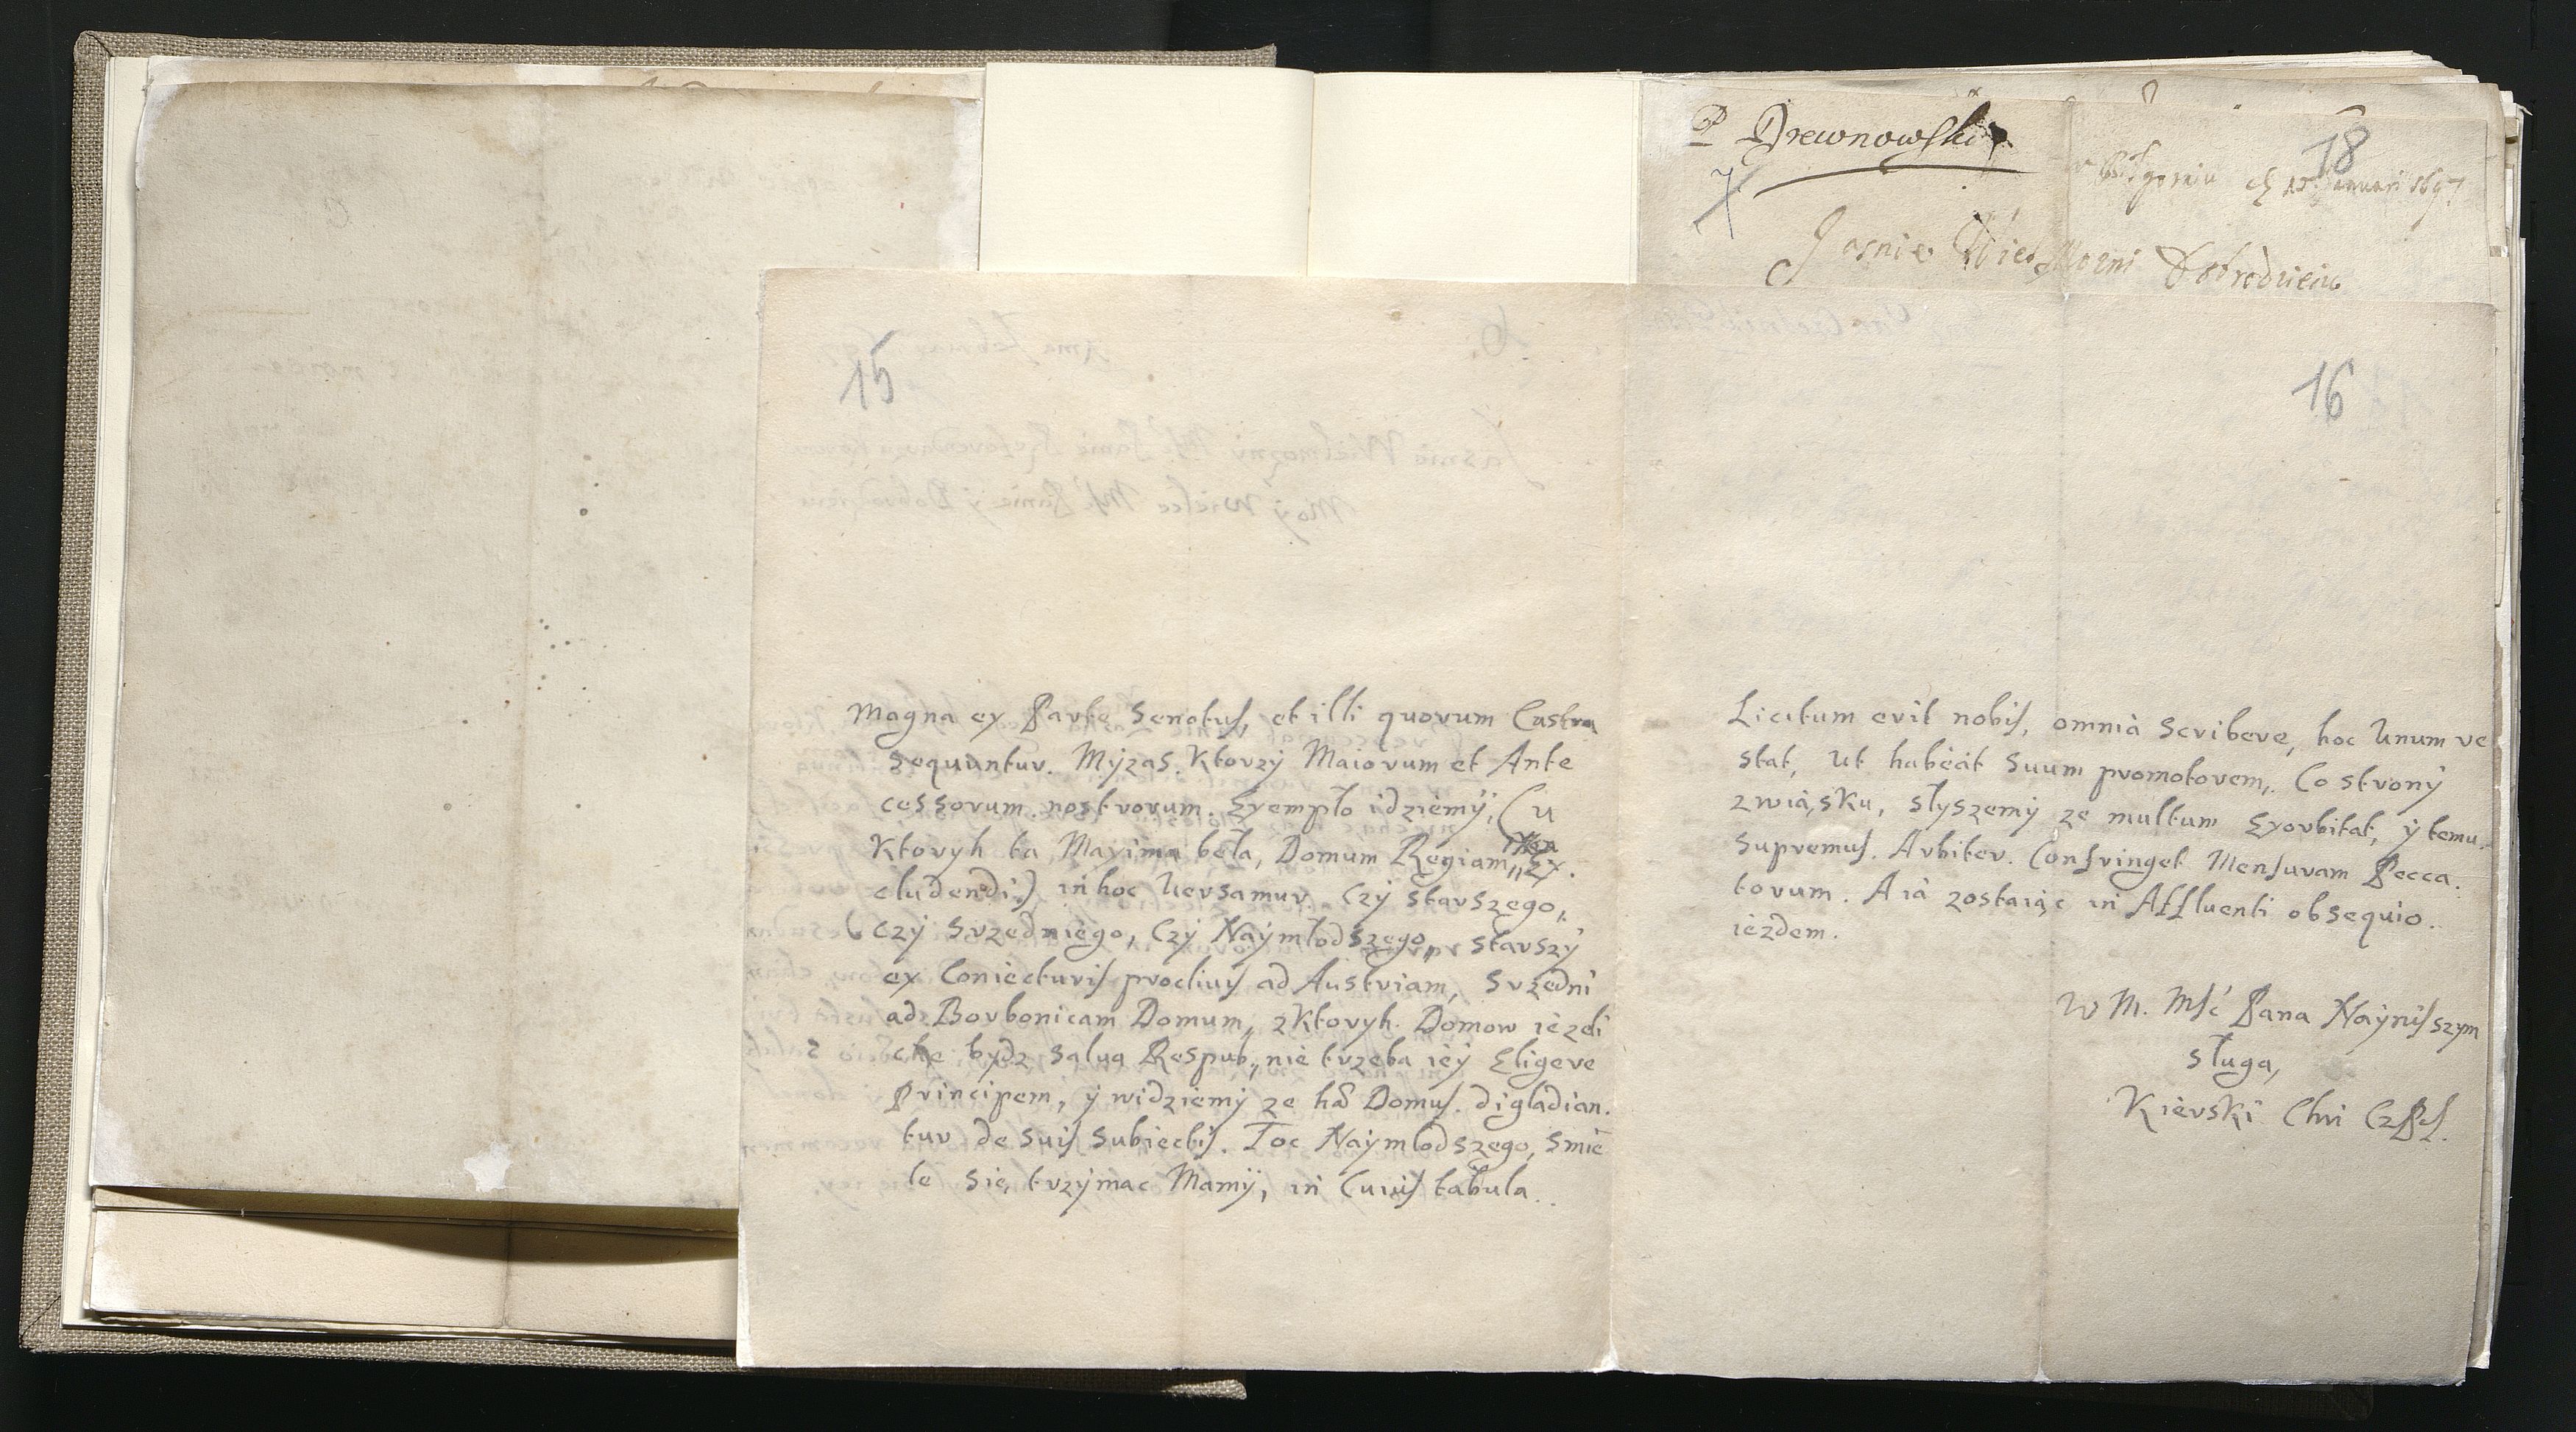 P Drewnowski
18
Januari 1697
Jasnie Wiel Mozni Dobrodzieiu
15
Magna ex Parte Senatus, et illi quorum Castra
sequuntur. Myzas. Ktorzy Maiorum et Ante
cessorum. nostrorum. Exemplo idziemy, (u
Ktoryh ta Maxima beła, Domum Regiam, non Ex.
cludendi) in hoc Uersamur. Czy starszego,
Czy Srzedniego, Czy Naymłodszego, starszy
ex Coniecturis proclius ad Austriam, Srzedni
ad Borbonicam Domum, zKtoryh. Domow iezeli
che bydz salua Respub, nie trzeba iey Eligere
Principem, y widziemy ze hae Domus. digladian.
tur de suis subiectis. Toc Naymlodszego, smie
le sie, trzymac Mamy, in Cuius tabula.
16
Licitum erit nobis, omnia scribere, hoc Unum re
stat, Ut habeat suum promotorem, Co strony
zwia,sku, słyszemy ze multum Exorbitat, y temu.
supremus. Arbiter. Confringet Mensuram Pecca.
torum. A ia zostaia,c in Affluenti obsequio.
iezdem.
W M. Mść Pana Nayniszym
Sługa,
Kierski Chri